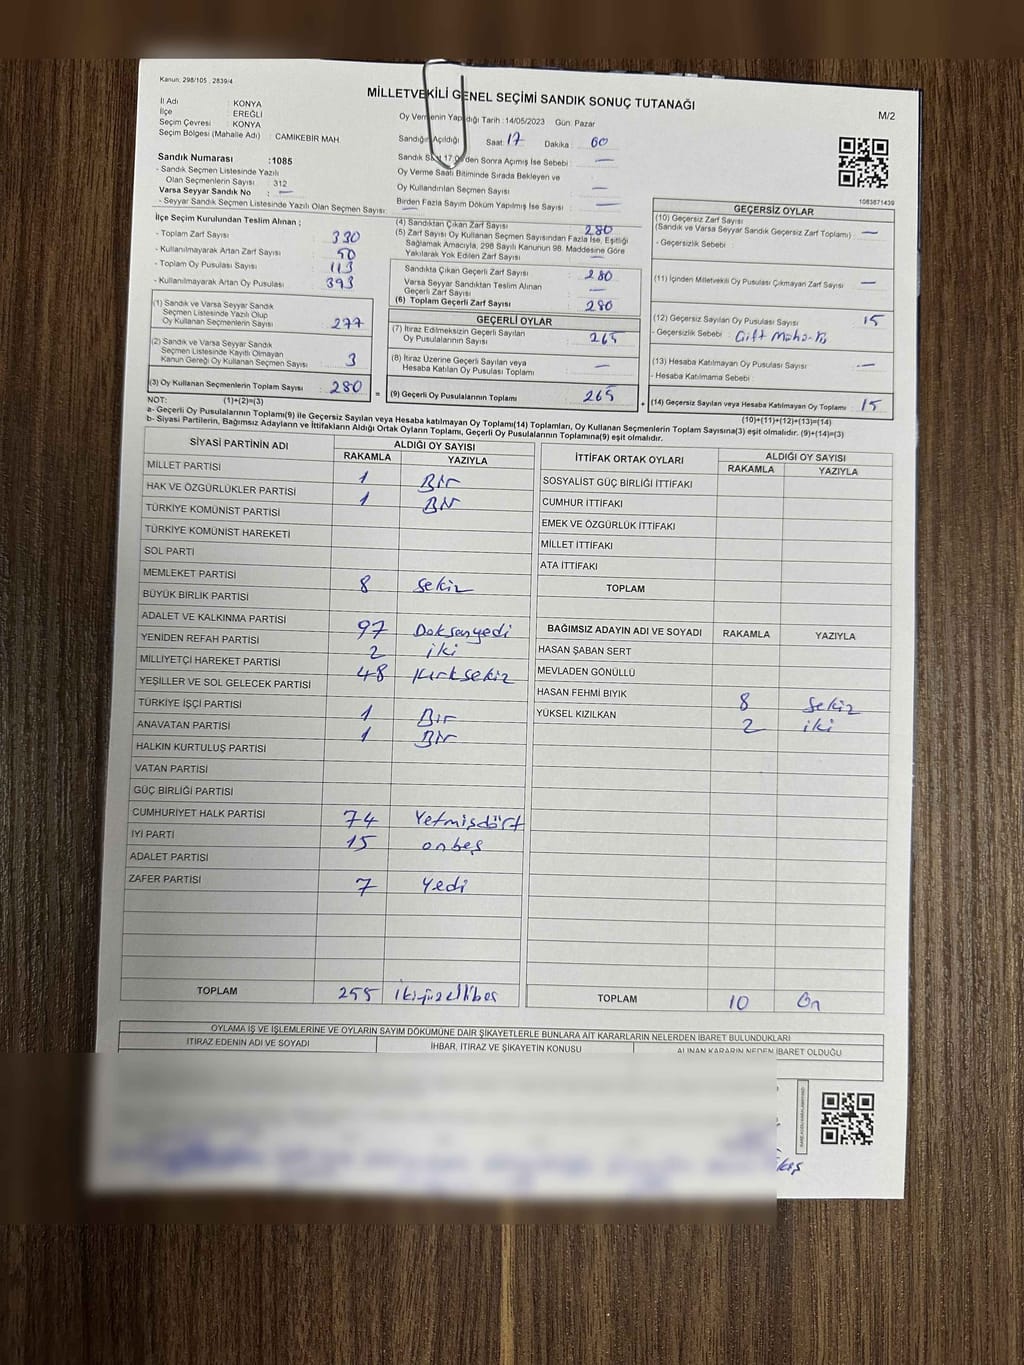 Kanun: 298/105 , 2839/4
MİLLETVEKİLİ GENEL SEÇİMİ SANDIK SONUÇ TUTANAĞI
M/2
İl Adı : KONYA
İlçe : EREĞLİ
Seçim Çevresi : KONYA
Seçim Bölgesi (Mahalle Adı) : CAMİKEBİR MAH
Oy Vermenin Yapıldığı Tarih :14/05/2023 Gün: Pazar
Sandığın Açıldığı Saat: 17 Dakika : 00
Sandık Saat 17.00'den Sonra Açılmış İse Sebebi : —
Oy Verme Saati Bitiminde Sırada Bekleyen ve
Oy Kullandırılan Seçmen Sayısı : —
Birden Fazla Sayım Döküm Yapılmış İse Sayısı : —
Sandık Numarası :1085
- Sandık Seçmen Listesinde Yazılı
Olan Seçmenlerin Sayısı : 312
Varsa Seyyar Sandık No : —
- Seyyar Sandık Seçmen Listesinde Yazılı Olan Seçmen Sayısı: —
1083871439
İlçe Seçim Kurulundan Teslim Alınan ;
- Toplam Zarf Sayısı : 330
- Kullanılmayarak Artan Zarf Sayısı : 50
- Toplam Oy Pusulası Sayısı : 113
- Kullanılmayarak Artan Oy Pusulası : 393
(1) Sandık ve Varsa Seyyar Sandık
Seçmen Listesinde Yazılı Olup
Oy Kullanan Seçmenlerin Sayısı : 277
(2) Sandık ve Varsa Seyyar Sandık
Seçmen Listesinde Kayıtlı Olmayan
Kanun Gereği Oy Kullanan Seçmen Sayısı : 3
(3) Oy Kullanan Seçmenlerin Toplam Sayısı : 280
(4) Sandıktan Çıkan Zarf Sayısı : 280
(5) Zarf Sayısı Oy Kullanan Seçmen Sayısından Fazla İse, Eşitliği
Sağlamak Amacıyla, 298 Sayılı Kanunun 98. Maddesine Göre
Yakılarak Yok Edilen Zarf Sayısı : —
Sandıkta Çıkan Geçerli Zarf Sayısı : 280
Varsa Seyyar Sandıktan Teslim Alınan
Geçerli Zarf Sayısı : —
(6) Toplam Geçerli Zarf Sayısı : 280
GEÇERLİ OYLAR
(7) İtiraz Edilmeksizin Geçerli Sayılan
Oy Pusulalarının Sayısı : 265
(8) İtiraz Üzerine Geçerli Sayılan veya
Hesaba Katılan Oy Pusulası Toplamı : —
= (9) Geçerli Oy Pusulalarının Toplamı : 265
GEÇERSİZ OYLAR
(10) Geçersiz Zarf Sayısı
(Sandık ve Varsa Seyyar Sandık Geçersiz Zarf Toplamı) : —
- Geçersizlik Sebebi :
(11) İçinden Milletvekili Oy Pusulası Çıkmayan Zarf Sayısı : —
(12) Geçersiz Sayılan Oy Pusulası Sayısı : 15
- Geçersizlik Sebebi :
(13) Hesaba Katılmayan Oy Pusulası Sayısı : —
- Hesaba Katılmama Sebebi :
+ (14) Geçersiz Sayılan veya Hesaba Katılmayan Oy Toplamı : 15
NOT: (1)+(2)=(3)
(10)+(11)+(12)+(13)=(14)
a- Geçerli Oy Pusulalarının Toplamı(9) ile Geçersiz Sayılan veya Hesaba katılmayan Oy Toplamı(14) Toplamları, Oy Kullanan Seçmenlerin Toplam Sayısına(3) eşit olmalıdır. (9)+(14)=(3)
b- Siyasi Partilerin, Bağımsız Adayların ve İttifakların Aldığı Ortak Oyların Toplamı, Geçerli Oy Pusulalarının Toplamına(9) eşit olmalıdır.
SİYASİ PARTİNİN ADI ALDIĞI OY SAYISI
RAKAMLA YAZIYLA
MİLLET PARTİSİ 1 Bir
HAK VE ÖZGÜRLÜKLER PARTİSİ 1 Bir
TÜRKİYE KOMÜNİST PARTİSİ
TÜRKİYE KOMÜNİST HAREKETİ
SOL PARTİ
MEMLEKET PARTİSİ 8 Sekiz
BÜYÜK BİRLİK PARTİSİ
ADALET VE KALKINMA PARTİSİ 97 Doksanyedi
YENİDEN REFAH PARTİSİ 2 iki
MİLLİYETÇİ HAREKET PARTİSİ 48 Kırksekiz
YEŞİLLER VE SOL GELECEK PARTİSİ
TÜRKİYE İŞÇİ PARTİSİ 1 Bir
ANAVATAN PARTİSİ 1 Bir
HALKIN KURTULUŞ PARTİSİ
VATAN PARTİSİ
GÜÇ BİRLİĞİ PARTİSİ
CUMHURİYET HALK PARTİSİ 74 Yetmişdört
İYİ PARTİ 15 onbeş
ADALET PARTİSİ
ZAFER PARTİSİ 7 Yedi
TOPLAM 255 ikiyüzellibeş
İTTİFAK ORTAK OYLARI ALDIĞI OY SAYISI
RAKAMLA YAZIYLA
SOSYALİST GÜÇ BİRLİĞİ İTTİFAKI
CUMHUR İTTİFAKI
EMEK VE ÖZGÜRLÜK İTTİFAKI
MİLLET İTTİFAKI
ATA İTTİFAKI
TOPLAM
BAĞIMSIZ ADAYIN ADI VE SOYADI RAKAMLA YAZIYLA
HASAN ŞABAN SERT
MEVLADEN GÖNÜLLÜ
HASAN FEHMİ BIYIK 8 Sekiz
YÜKSEL KIZILKAN 2 iki
TOPLAM 10 On
OYLAMA İŞ VE İŞLEMLERİNE VE OYLARIN SAYIM DÖKÜMÜNE DAİR ŞİKAYETLERLE BUNLARA AİT KARARLARIN NELERDEN İBARET BULUNDUKLARI
İTİRAZ EDENİN ADI VE SOYADI İHBAR, İTİRAZ VE ŞİKAYETİN KONUSU ALINAN KARARIN NEDEN İBARET OLDUĞU